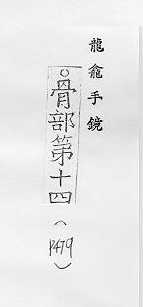 龍龕手鏡
骨部第十四
(P479)